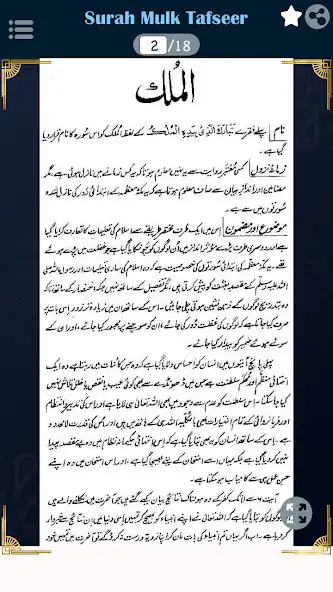 Surah Mulk Tafseer
2 /18
الْمُلْك
نام | پہلے فقرے تَبَارَكَ الَّذِىْ بِيَدِهِ الْمُلْكُ کے لفظ الملک کو اس سورہ کا نام قرار دیا
گیا ہے۔
زمانۂ نزول | کسی معتبر روایت سے یہ نہیں معلوم ہوتا کہ یہ کس زمانے میں نازل ہوئی ہے، مگر
مضامین اور انداز بیان سے صاف معلوم ہوتا ہے کہ یہ مکہ معظمہ کے ابتدائی دور کی نازل شدہ
سورتوں میں سے ہے۔
موضوع اور مضمون | اس میں ایک طرف مختصر طریقے سے اسلام کی تعلیمات کا تعارف کرایا گیا
ہے اور دوسری طرف بڑے مؤثر انداز میں اُن لوگوں کو چونکایا گیا ہے جو غفلت میں پڑے ہوئے
تھے۔ یہ مکہ معظمہ کی ابتدائی سورتوں کی خصوصیت ہے کہ وہ اسلام کی ساری تعلیمات اور رسول اللہ صلی
اللہ علیہ وسلم کے مقصدِ بعثت کو پیش کرتی ہیں، مگر تفصیل کے ساتھ نہیں بلکہ اختصار کے ساتھ، تاکہ
وہ بتدریج لوگوں کے ذہن نشین ہوتی چلی جائیں۔ اس کے ساتھ ان میں زیادہ تر زور اس بات پر
صرف کیا جاتا ہے کہ لوگوں کی غفلت دُور کی جائے، ان کو سوچنے پر مجبور کیا جائے، اور ان کے
سوئے ہوئے ضمیر کو بیدار کیا جائے۔
پہلی پانچ آیتوں میں انسان کو احساس دلایا گیا ہے کہ وہ جس کائنات میں رہتا ہے وہ ایک
انتہائی منظم اور محکم سلطنت ہے جس میں ڈھونڈے سے بھی کوئی عیب یا نقص یا خلل تلاش نہیں
کیا جا سکتا۔ اس سلطنت کو عدم سے وجود میں بھی اللہ تعالیٰ ہی لایا ہے اور اس کی تدبیر و انتظام
اور فرمانروائی کے تمام اختیارات بھی بالکلیہ اللہ ہی کے ہاتھ میں ہیں اور اُس کی قدرت لامحدود
ہے۔ اس کے ساتھ انسان کو یہ بھی بتایا گیا ہے کہ اس انتہائی حکیمانہ نظام میں وہ بے مقصد پیدا
نہیں کر دیا گیا ہے بلکہ یہاں اسے امتحان کے لیے بھیجا گیا ہے، اور اس امتحان میں وہ اپنے
حسنِ عمل ہی سے کامیاب ہو سکتا ہے۔
آیت ۶ سے ۱۱ تک کفر کے وہ ہولناک نتائج بیان کیے گئے ہیں جو آخرت میں نکلنے والے ہیں